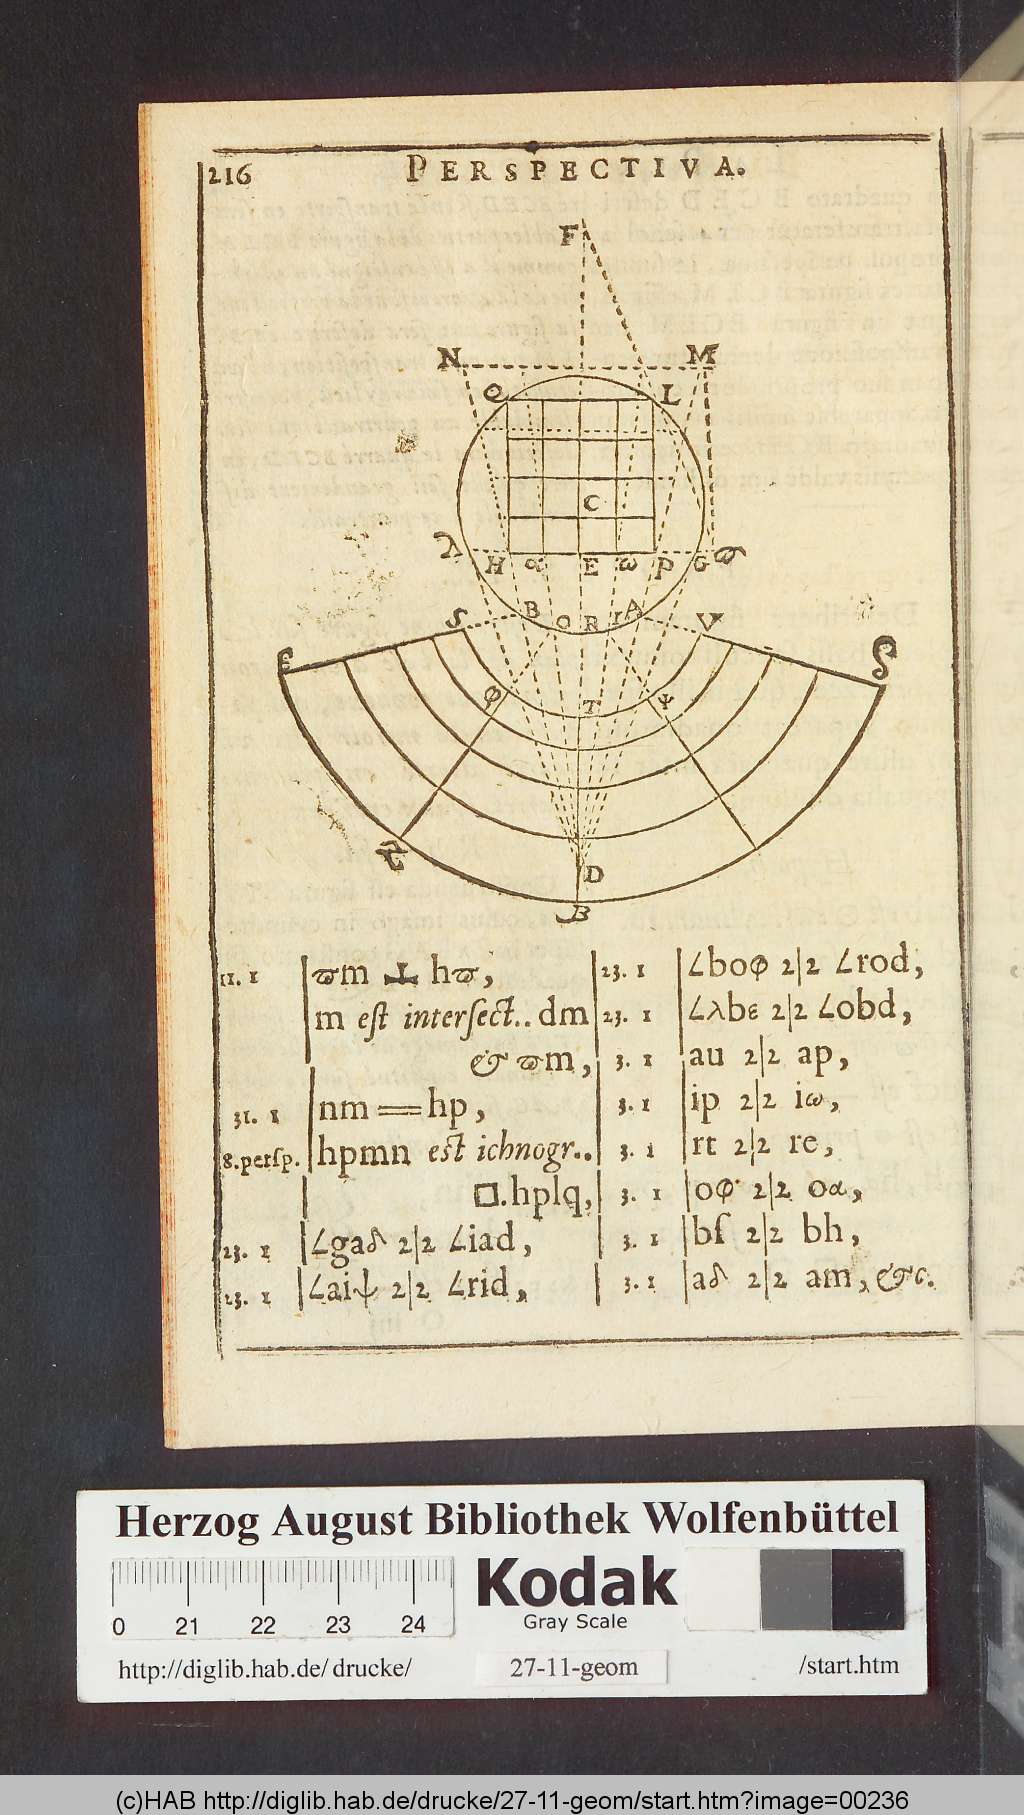 216 PERSPECTIVA.
F
N M
Q L
C
λ H α E ω P G ϖ
S B O R I A V
ε δ
φ T ψ
D
B
11. 1 ϖm ⊥ hϖ,
m est intersect.. dm
& ϖm,
31. 1 nm == hp,
8. persp. hpmn est ichnogr..
□.hplq,
23. 1 ∠gaδ 2|2 ∠iad,
23. 1 ∠aiψ 2|2 ∠rid,
23. 1 ∠boφ 2|2 ∠rod,
23. 1 ∠λbε 2|2 ∠obd,
3. 1 au 2|2 ap,
3. 1 ip 2|2 iω,
3. 1 rt 2|2 re,
3. 1 oφ 2|2 oα,
3. 1 bſ 2|2 bh,
3. 1 aδ 2|2 am, &c.
Herzog August Bibliothek Wolfenbüttel
0 21 22 23 24
Kodak
Gray Scale
http://diglib.hab.de/drucke/ 27-11-geom /start.htm
(c)HAB http://diglib.hab.de/drucke/27-11-geom/start.htm?image=00236